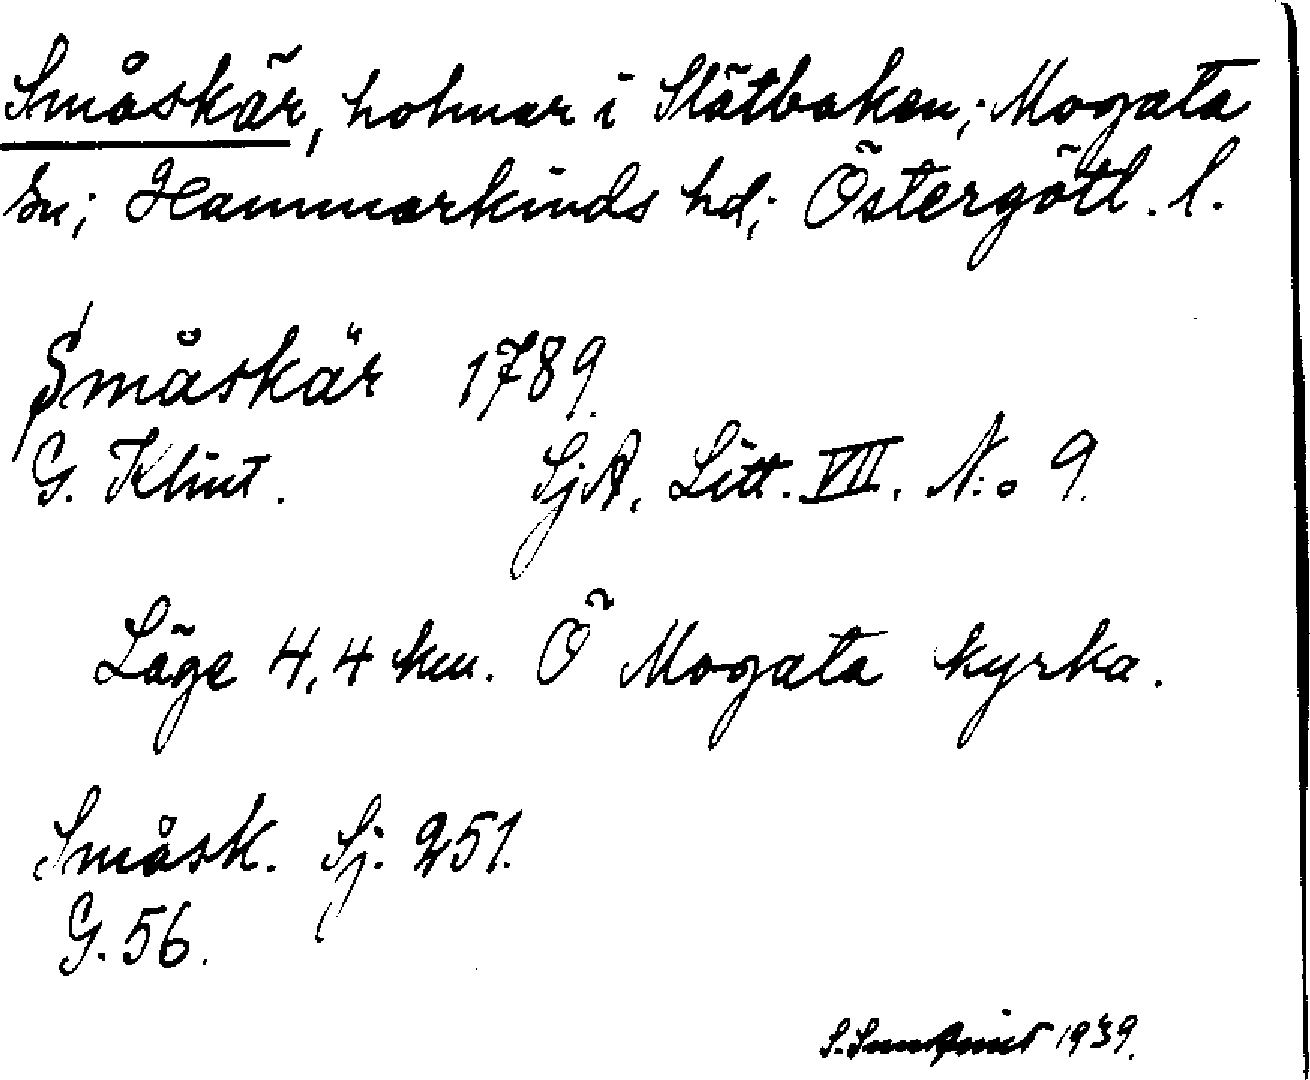 Småskär, holmar i Slätbaken; Mogata
sn; Hammarkinds hd; Östergötl. l.
Småskär 1789.
G. Klint. SjA, Litt. VII. N:o 9.
Läge 4,4 km. Ö Mogata kyrka.
Småsk. Sj. 251.
G. 56.
S. 1939.